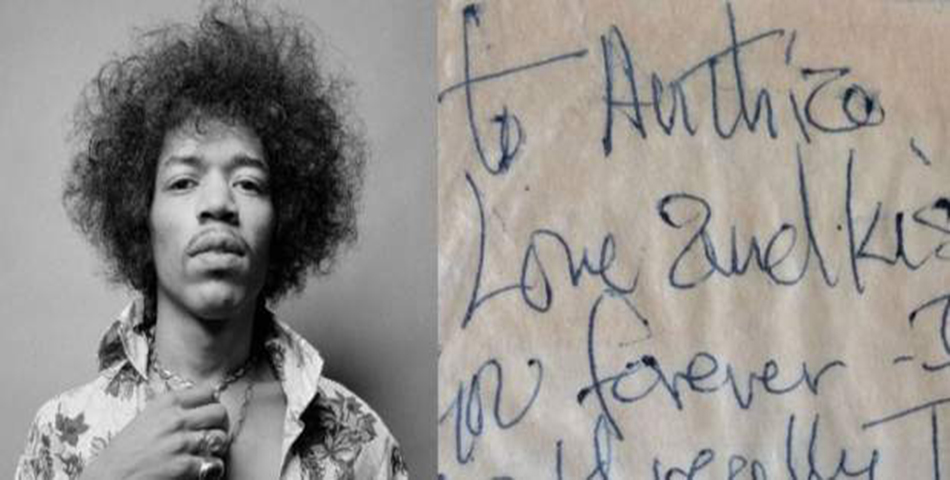 to Anthea
Love and kis
you forever -
really